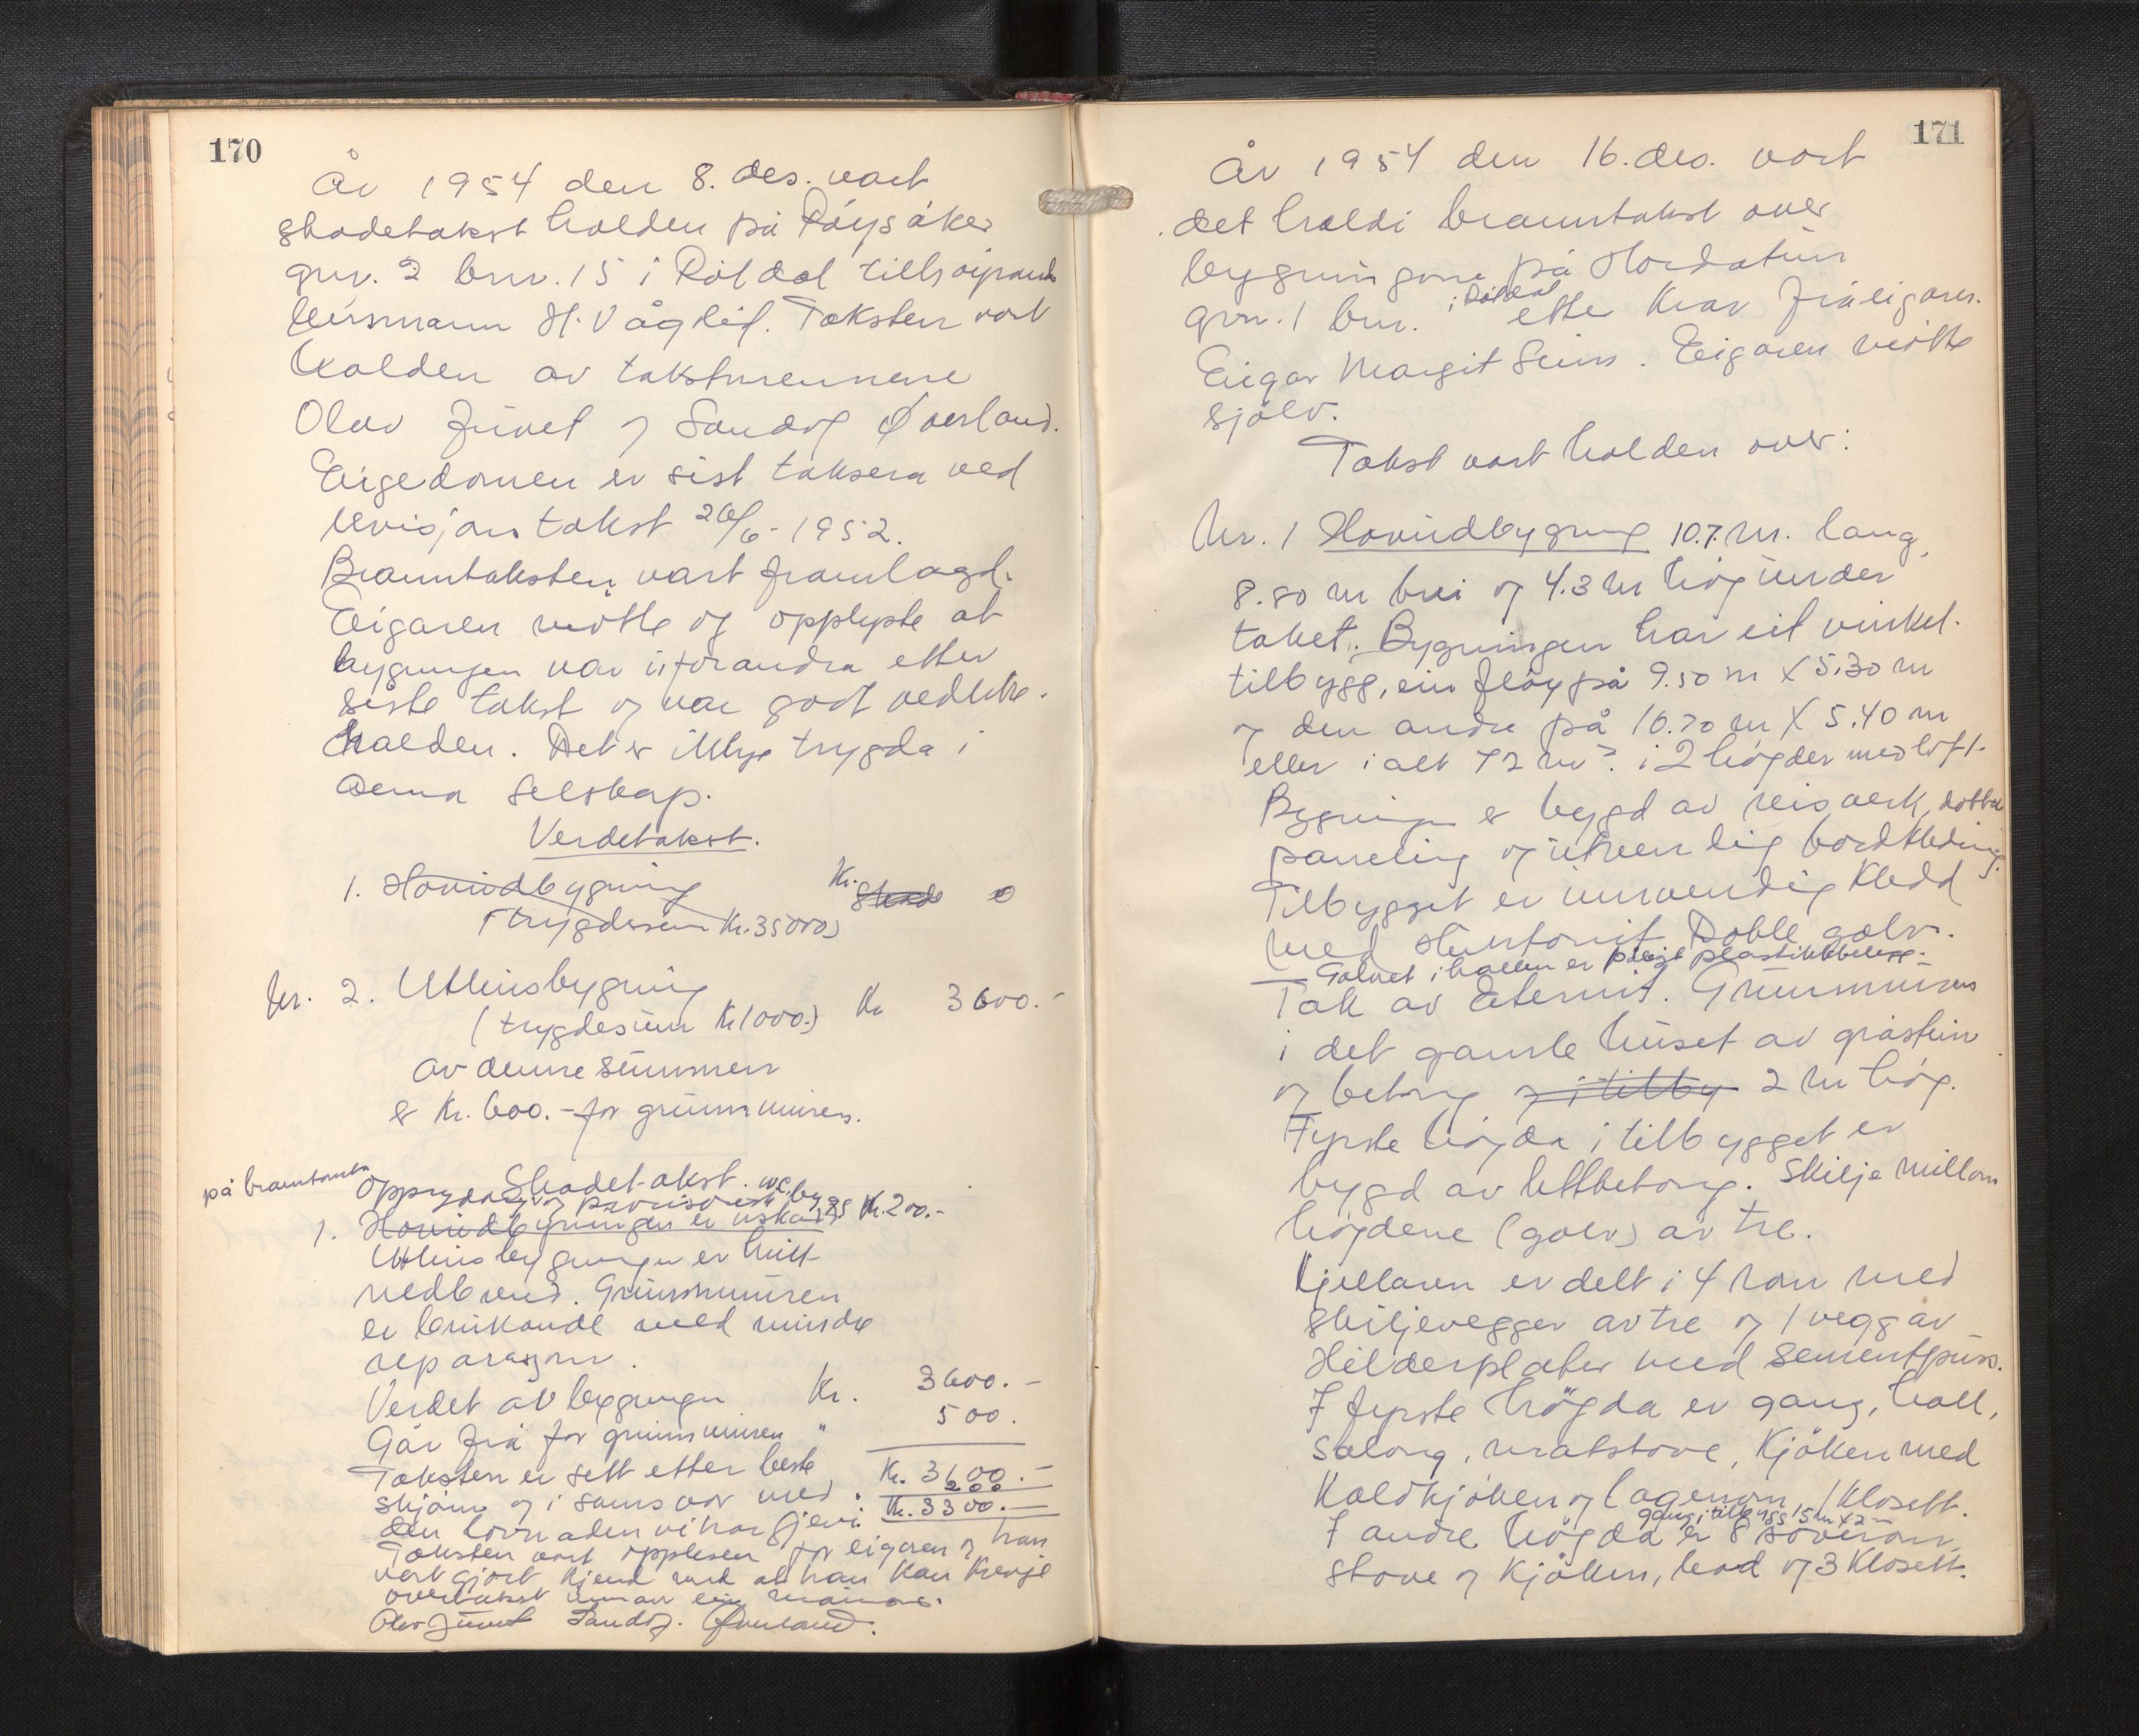 170
År 1954 den 8. des. vart
skadetakst halden på Röysåker
gnr. 2 bnr. 15 i Röldal
lensmann H. Våglid. Taksten vart
halden av takstmennene
Olav Juvet og Sandof Øverland.
Eigedomen er sist taksera ved
revisjons takst 26/6-1952.
Branntaksten vart framlagd.
Eigaren mötte og opplyste at
bygningen var uforandra etter
siste takst og var godt vedlike-
halden. Det er ikkje trygda i
anna selskap.
Verdetakst.
1. Hovudbygning Kr. Skade 0
(trygdesum Kr. 35000)
Nr. 2. Uthusbygning
(trygdesum Kr 1000.) Kr 3600.-
av denne summen
er Kr. 600.- for grunnmuren.
Skadetakst.
på branntomta
Opprydding og provisorisk bygg Kr. 200.-
1. Hovudbygningen er uskadd
Uthusbygningen er heilt
nedbrend. Grunnmuren
er brukande med mindre
reparasjonar.
Verdet av bygningen Kr. 3600.-
Går frå for grunnmuren " 500.
Taksten er sett etter beste Kr. 3600.-
200
skjönn og i samsvar med Kr. 3300.-
den lovnaden vi har gjevi.
Taksten vart opplesen for eigaren og han
vart gjort kjend med at han kan krevje
overtakst innan ein månad.
Olav Juvet Sandof Øverland.
171
År 1954 den 16. des. vart
det haldi branntakst over
bygningane på Hordatun
i Röldal
gnr. 1 bnr. etter krav frå eigaren.
Eigar Margit Seim. Eigaren mötte
sjölv.
Takst vart halden over:
Nr. 1 Hovudbygning 10.7 m. lang,
8.80 m brei og 4.3 m hög under
taket. Bygningen har eit vinkel-
tilbygg, ein flöy på 9.50 m x 5.30 m
og den andre på 10.70 m x 5.40 m
eller i alt 72 m². i 2 högder med loft.
Bygningen er bygd av reisverk, dobbel
paneling og utvendig bordkledning.
Tilbygget er innvendig kledd
med Huntonit. Doble golv.
Golvet i hallen er pålagt plastikkbelegg.
Tak av Eternit. Grunnmuren
i det gamle huset av gråstein
og betong og i tilby 2 m hög.
Fyrste högda i tilbygget er
bygd av lettbetong. Skilje millom
högdene (golv) av tre.
Kjellaren er delt i 4 rom med
skiljevegger av tre og 1 vegg av
Hilderplater med sementpuss.
I fyrste högda er gang, hall,
salong, matstove, kjöken med
kaldkjöken og lagerrom, 1 klosett.
gang i tilbygg 5 m x 2 m
I andre högda er 8 soverom,
stove og kjöken, bad og 3 klosett.